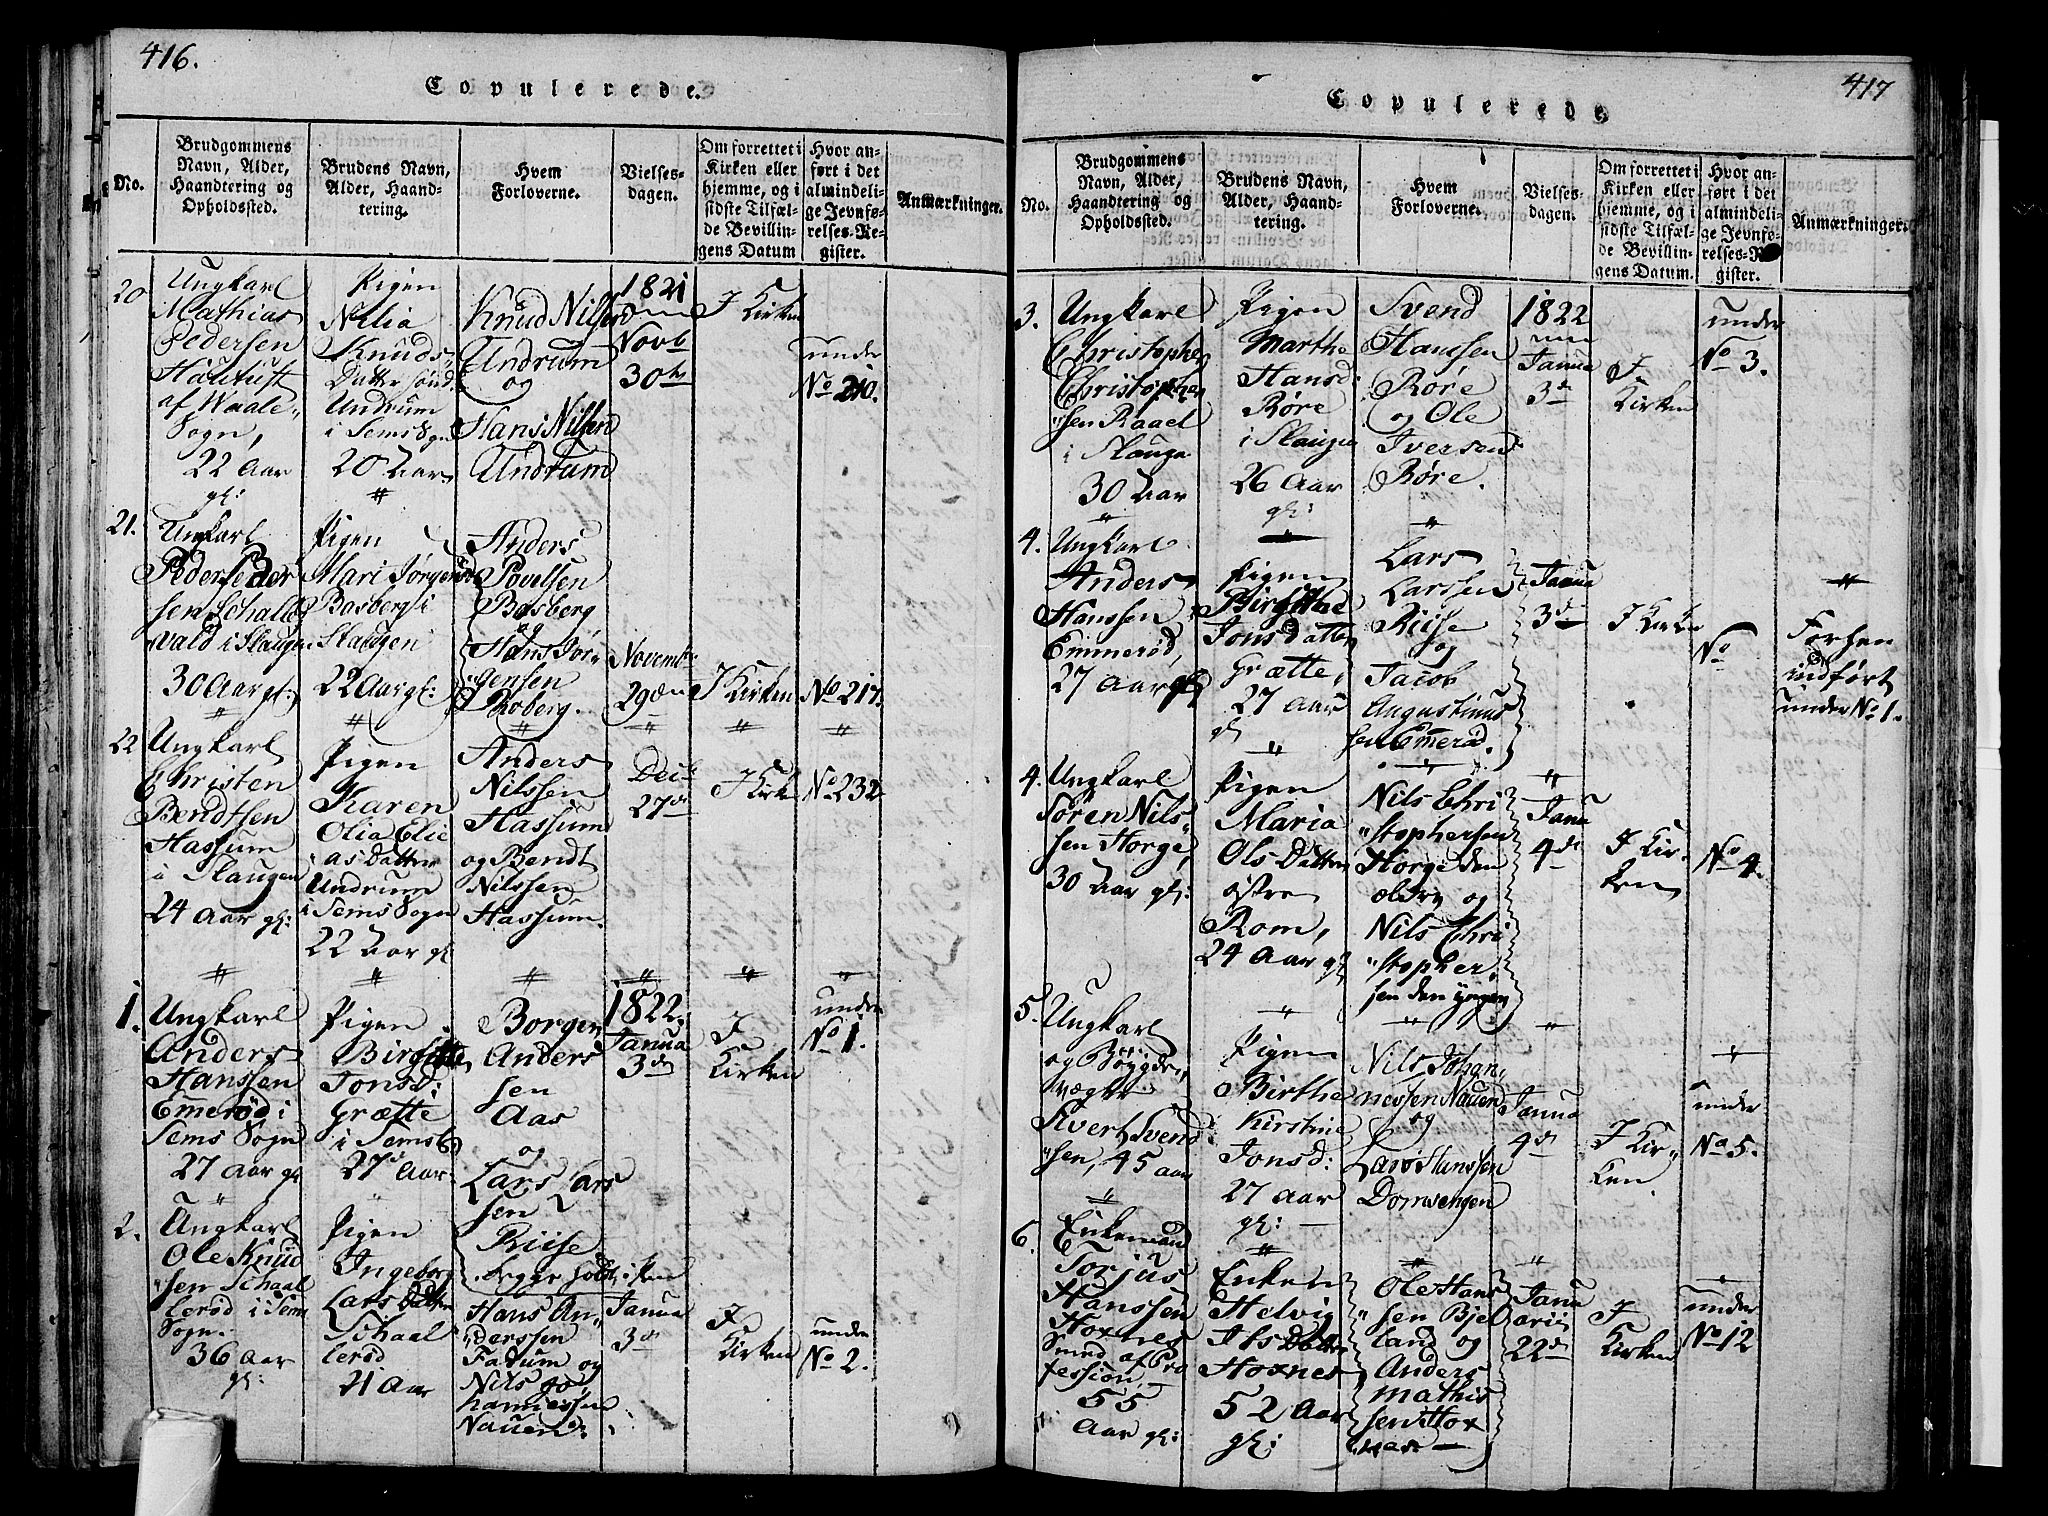 416.
Copulerede.
No.
Brudgommens
Navn, Alder,
Haandtering og
Opholdssted.
Brudens Navn,
Alder, Haand-
tering.
Hvem
Forloverne.
Vielses-
dagen.
Om forrettet i
Kirken eller
hjemme, og i
sidste Tilfæl-
de Bevillin-
gens Datum
Hvor an-
ført i det
almindeli-
ge Jevnfø-
relses-Re-
gister.
Anmærkninger.
20
Ungkarl
Mathias
Pedersen
af Waale-
Sogn,
22 Aar
gl:
Pigen
Nilia
Knuds
Datter
Undrum
i Sems Sogn
20 Aar
Knud Nilsen
Undrum
og
Hans Nilsen
Undrum
1821
Novb
30te
I Kirken
under
No 210.
21.
Ungkarl
Peder Peder
sen Schalle
vald i Slaugen
30 Aar gl:
Pigen
Mari Jørgensd
Basberg i
Slaugen
22 Aar gl:
Anders
Povelsen
Basberg
og
Hans Jør-
gensen
Novemb
29den
I Kirken
No 217.
22
Ungkarl
Christen
Bendtsen
Hassum
i Slaugen
24 Aar gl:
Pigen
Karen
Olia Elie
as Datter
Undrum
i Sems Sogn
22 Aar gl
Anders
Nilssen
Hassum
og Bendt
Nilssen
Hassum.
27de
I Kirk
No 232
1.
Ungkarl
Anders
Hanssen
Emerød i
Sems Sogn
27 Aar gl
Pigen
Birgitte
Jonsd:
Grætte
i Sems S
27 Aar.
Borgen
Anders
sen
Aas
og
Lars Lars
sen
Riise
1822.
Janua
3de
I
Kirken
under
No 1.
2.
Ungkarl
Ole Knud
sen Schaal
lerød i Sem
Sogn.
36 Aar
gl:
Pigen
Ingeborg
Lars Datter
Schaal
lerød
21 Aar
Hans An
derssen
Fadum og
Nils Jo
hannessen
Nauen:
Janua
3de
I
Kirken
under
No 2.
417
Copulerede
No.
Brudgommens
Navn, Alder,
Haandtering og
Opholdssted.
Brudens Navn,
Alder, Haand-
tering.
Hvem
Forloverne.
Vielses-
dagen.
Om forrettet i
Kirken eller
hjemme, og i
sidste Tilfæl-
de Bevillin-
gens Datum.
Hvor an-
ført i det
almindeli-
ge Jevnfø-
relses-Re-
gister.
Anmærkninger.
3.
Ungkarl
Christopher
Christopher
sen Raael
i Slauge
30 Aar
Pigen
Marthe
Hansd
Røre
i Slaugen
26 Aar
gl:
Svend
Hansen
Røre
og Ole
Iversen
Røre.
1822
Janua
3de
I
Kirken
under
No 3.
4.
Ungkarl
Anders
Hanssen
Emmerød,
27 Aar gl
Pigen
Birgitte
Jons datter
Grætte,
27 Aar
gl
Lars
Larssen
Riise
og
Jacob
Augustinus
sen Emerød.
Janua
3de
I Kirken
No
Forhen
indført
under No 1.
4.
Ungkarl
Søren Nils
sen Horge,
30 Aar gl:
Pigen
Maria
Ols Datter
østre
Rom,
24 Aar gl
Nils Chri
stophersen
Horge den
ældre og
Nils Chri
stopher
sen den yngre
Janu
4de
I Kir-
ken
No 4.
5.
Ungkarl
og Bøygde
vægter
Svend
sen, 45 aar
Pigen
Birthe
Kirstine
Jonsd:
27 Aar
gl:
Nils Johan
nessen Nauen
og
Lars Hanssen
Janua
4de
I Kir
ken
under
No 5.
6.
Enkemand
Torjus
Hanssen
Hoxnes
Smed af Pro
fession
55
Aar gl:
Enken
Helvig
Ibs Datter
Hoxnes
52 Aar
gl:
Ole Hans
sen Bjel
land og
Anders
Mathis
sen Hox
nes
Janu
arii
22de
I
Kirken
under
No 12